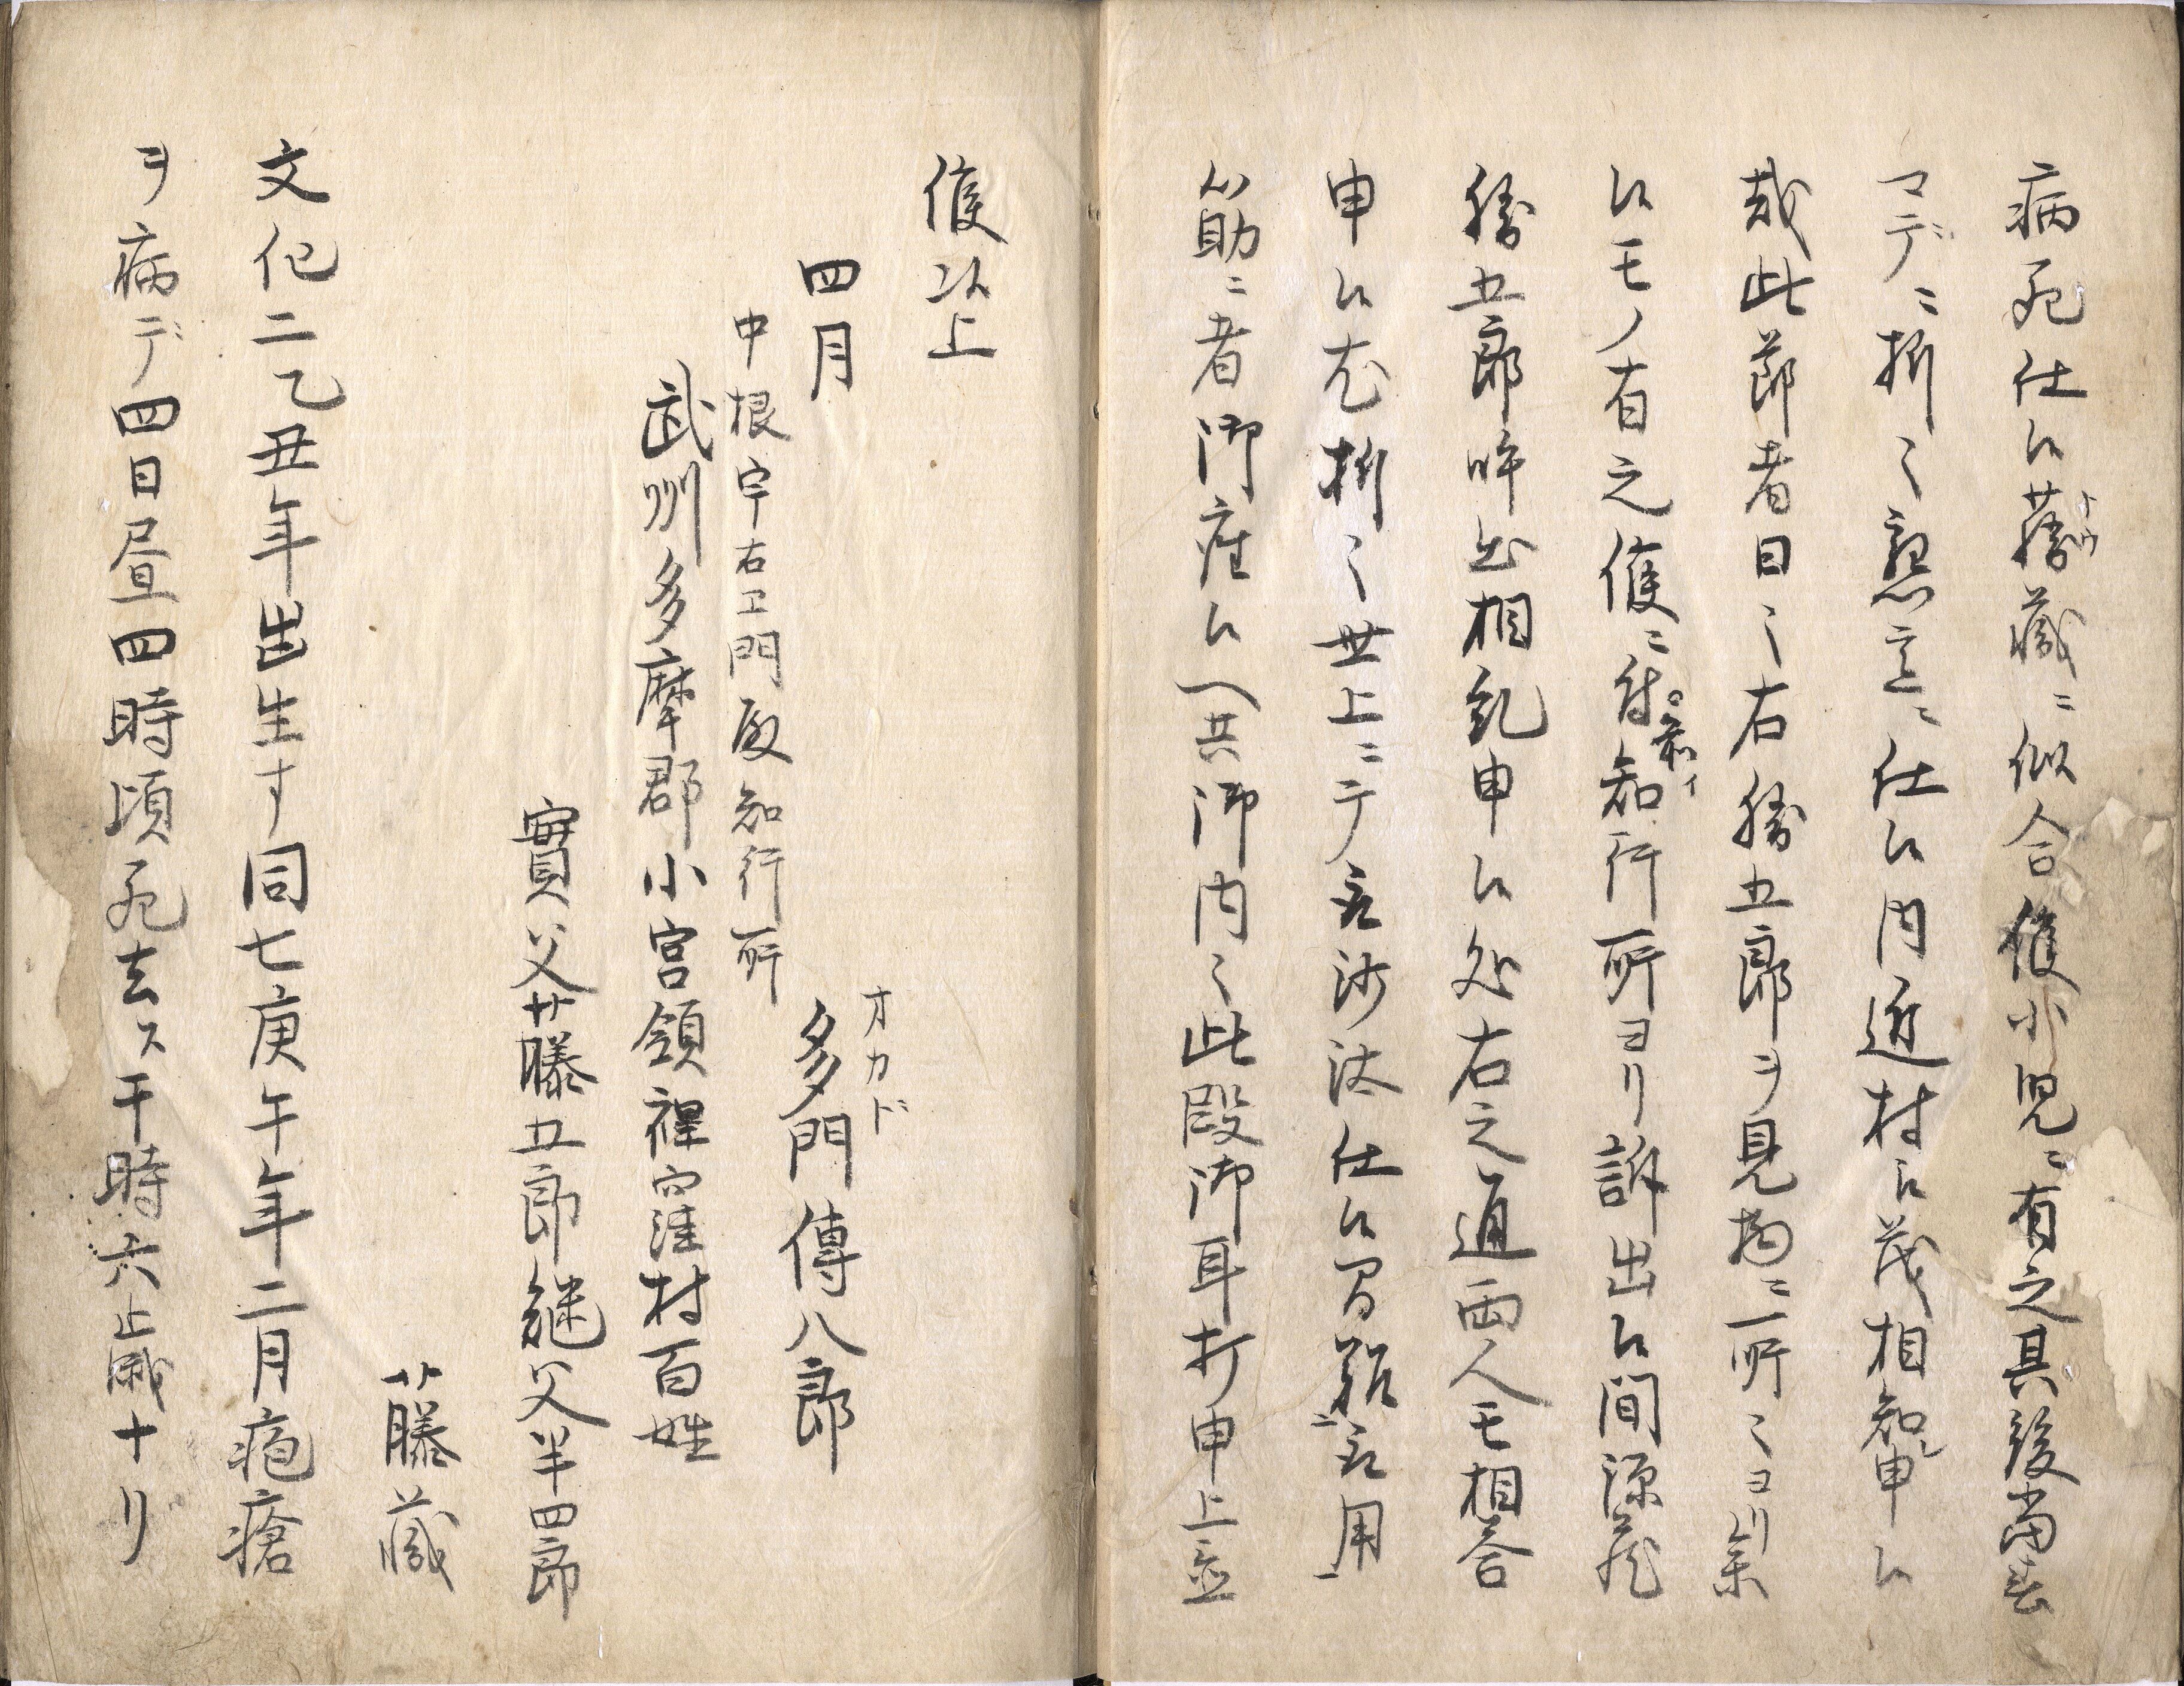 病死仕候藤蔵ニ似合候小児ニ有之其後当春
マデニ折々懇意ニ仕候内近村ニ茂相知申候
哉此節者日々右勝五郎ヲ見物ニ所々ヨリ参
候モノ有之候ニ付知行所ヨリ訴出候間源蔵
勝五郎呼出相糺申候処右之通両人モ相答
申候尤折々世上ニテ言沙汰仕候間難言用
筋ニ者御座候ヘ共御内々此段御耳打申上置
候以上
四月
オカド
多門傳八郎
中根宇右エ門殿知行所
武州多摩郡小宮領裡窪村百姓
實父藤五郎継父半四郎
藤蔵
文化二乙丑年出生す同七庚午年二月疱瘡
ヲ病デ四日昼四時頃死去ス于時六歳ナリ